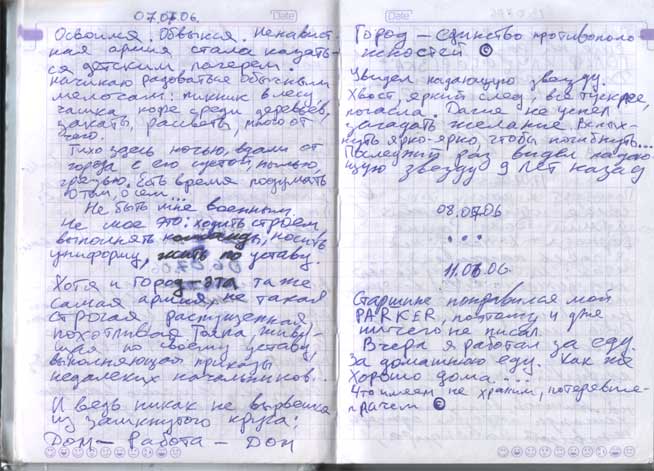 07.07.06.
Date
Освоился. Обвыкся. Ненавист-
ная армия стала казать-
ся детским лагерем.
начинаю радоваться обычным
мелочам: пикник в лесу
чашка кофе среди деревьев,
закаты, рассветы, много от
чего.
Тихо здесь ночью, вдали от
города с его суетой, пылью,
грязью, есть время подумать
о том, о сём
Не быть мне военным
Не мое это: ходить строем
выполнять команды, носить
униформу, жить по уставу.
Хотя и город – эта та же
самая армия, не такая
строгая распущенная
похотливая толпа, живу-
щая по своему уставу,
выполняющая приказы
недалеких начальников...
И ведь никак не вырвешься
из замкнутого круга:
Дом – Работа – Дом
Date
Город – единство противополо
жностей ©
Увидел падающую звезду.
Хвост, яркий след, всё тускнее,
погасла. Даже не успел
загадать желание Вспых-
нуть ярко-ярко, чтобы погибнуть...
Последний раз видел падаю-
щую звезду 9 лет назад
08.07.06
...
11.07.06.
Старшине понравился мой
PARKER, поэтому я уже
ничего не писал.
Вчера я работал за еду.
За домашнюю еду. Как же
хорошо дома...
Что имеем не храним, потерявши-
плачем ©